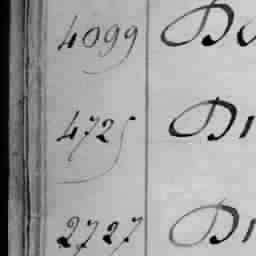 4099 Do
4725 Di
2727 Di